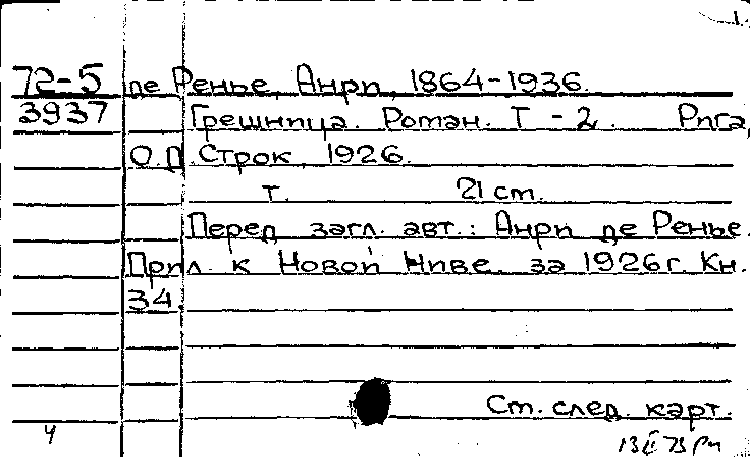 1.
72-5 де Ренье, Анри, 1864-1936.
3937 Грешница. Роман. Т - 2. Рига,
О.Д. Строк, 1926.
т. 21 cm.
Перед загл. авт.: Анри де Ренье.
Прил. к Новой Ниве. за 1926 г. Кн.
34.
См. след. карт.
4